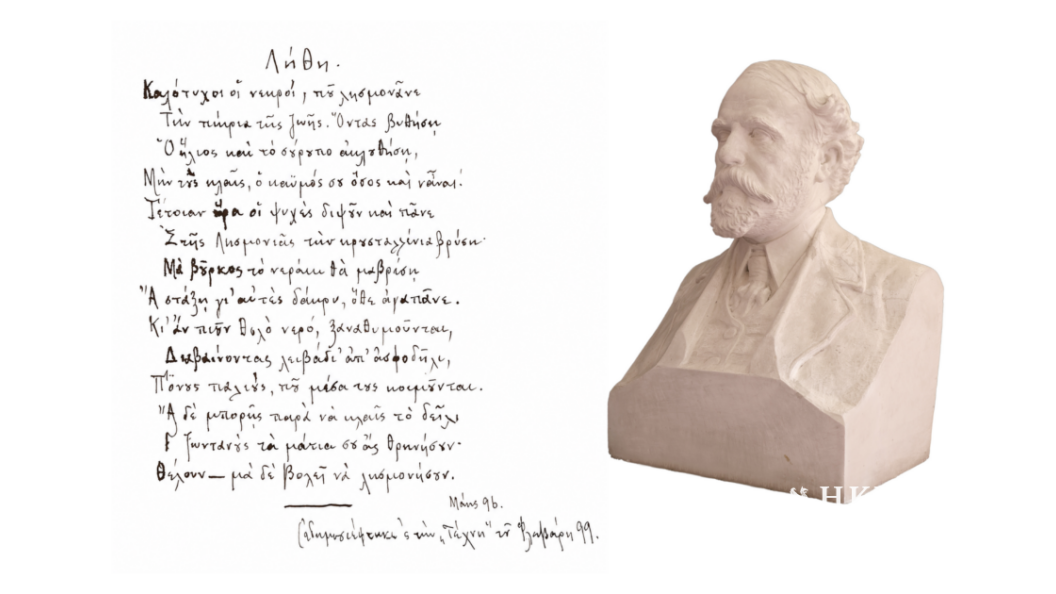 Λήθη.
Καλότυχοι οἱ νεκροί, ποῦ λησμονᾶνε
Τὴν πίκρια τῆς ζωῆς. Ὅντας βυθήσῃ
Ὁ ἥλιος καὶ τὸ σούρουπο ἀκλουθήσῃ,
Μὴν τοὺς κλαῖς, ὁ καϋμός σου ὅσος καὶ νἆναι!
Τέτοιαν ὥρα οἱ ψυχὲς διψοῦν καὶ πᾶνε
Στῆς Λησμονιᾶς τὴν κρυσταλλένια βρύση·
Μὰ βοῦρκος τὸ νεράκι θὰ μαβρίσῃ
Ἂ στάξῃ γι' αὐτὲς δάκρυ, ὅθε ἀγαπᾶνε.
Κι' ἂν πιοῦν θολὸ νερό, ξαναθυμοῦνται,
Διαβαίνοντας λειβάδι' ἀπ' ἀσφοδῆλι,
Πόνους παλιούς, ποῦ μέσα τους κοιμοῦνται.
Ἂ δὲ μπορῇς παρὰ νὰ κλαῖς τὸ δεῖλι
ζωντανοὺς τὰ μάτια σου ἂς θρηνήσουν·
Θέλουν — μὰ δὲ βολεῖ νὰ λησμονήσουν.
Μάης 96.
'ς τὴν „Τέχνη" τοῦ Φλεβάρη 99.